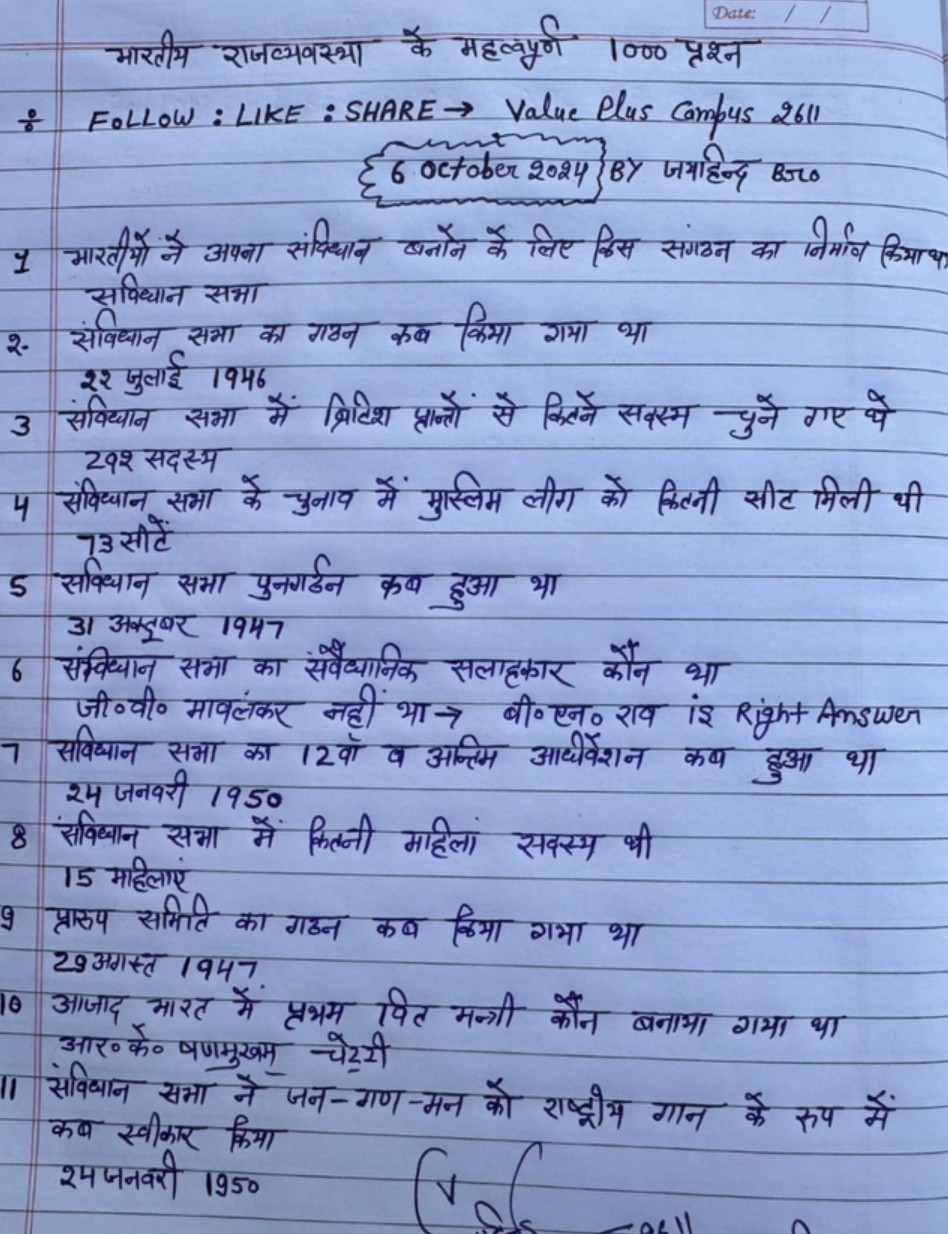 Date: / /
भारतीय राजव्यवस्था के महत्वपूर्ण 1000 प्रश्न
FOLLOW : LIKE : SHARE → Value Plus Campus 2611
6 October 2024 BY जयहिन्द
1 भारतीयों ने अपना संविधान बनाने के लिए किस संगठन का निर्माण किया था
संविधान सभा
2. संविधान सभा का गठन कब किया गया था
22 जुलाई 1946
3 संविधान सभा में ब्रिटिश प्रान्तों से कितने सदस्य चुने गए थे
292 सदस्य
4 संविधान सभा के चुनाव में मुस्लिम लीग को कितनी सीट मिली थी
73 सीटें
5 संविधान सभा पुनगर्ठन कब हुआ था
31 अक्टूबर 1947
6 संविधान सभा का संवैधानिक सलाहकार कौन था
जी०वी० मावलंकर नहीं था → बी०एन० राव is Right Answer
7 संविधान सभा का 12वाँ व अन्तिम अधिवेशन कब हुआ था
24 जनवरी 1950
8 संविधान सभा में कितनी महिला सदस्य थी
15 महिलाएं
9 प्रारुप समिति का गठन कब किया गया था
29 अगस्त 1947
10 आजाद भारत में प्रथम वित मन्त्री कौन बनाया गया था
आर० के० षणमुखम चेट्टी
11 संविधान सभा ने जन-गण-मन को राष्ट्रीय गान के रुप में
कब स्वीकार किया
24 जनवरी 1950